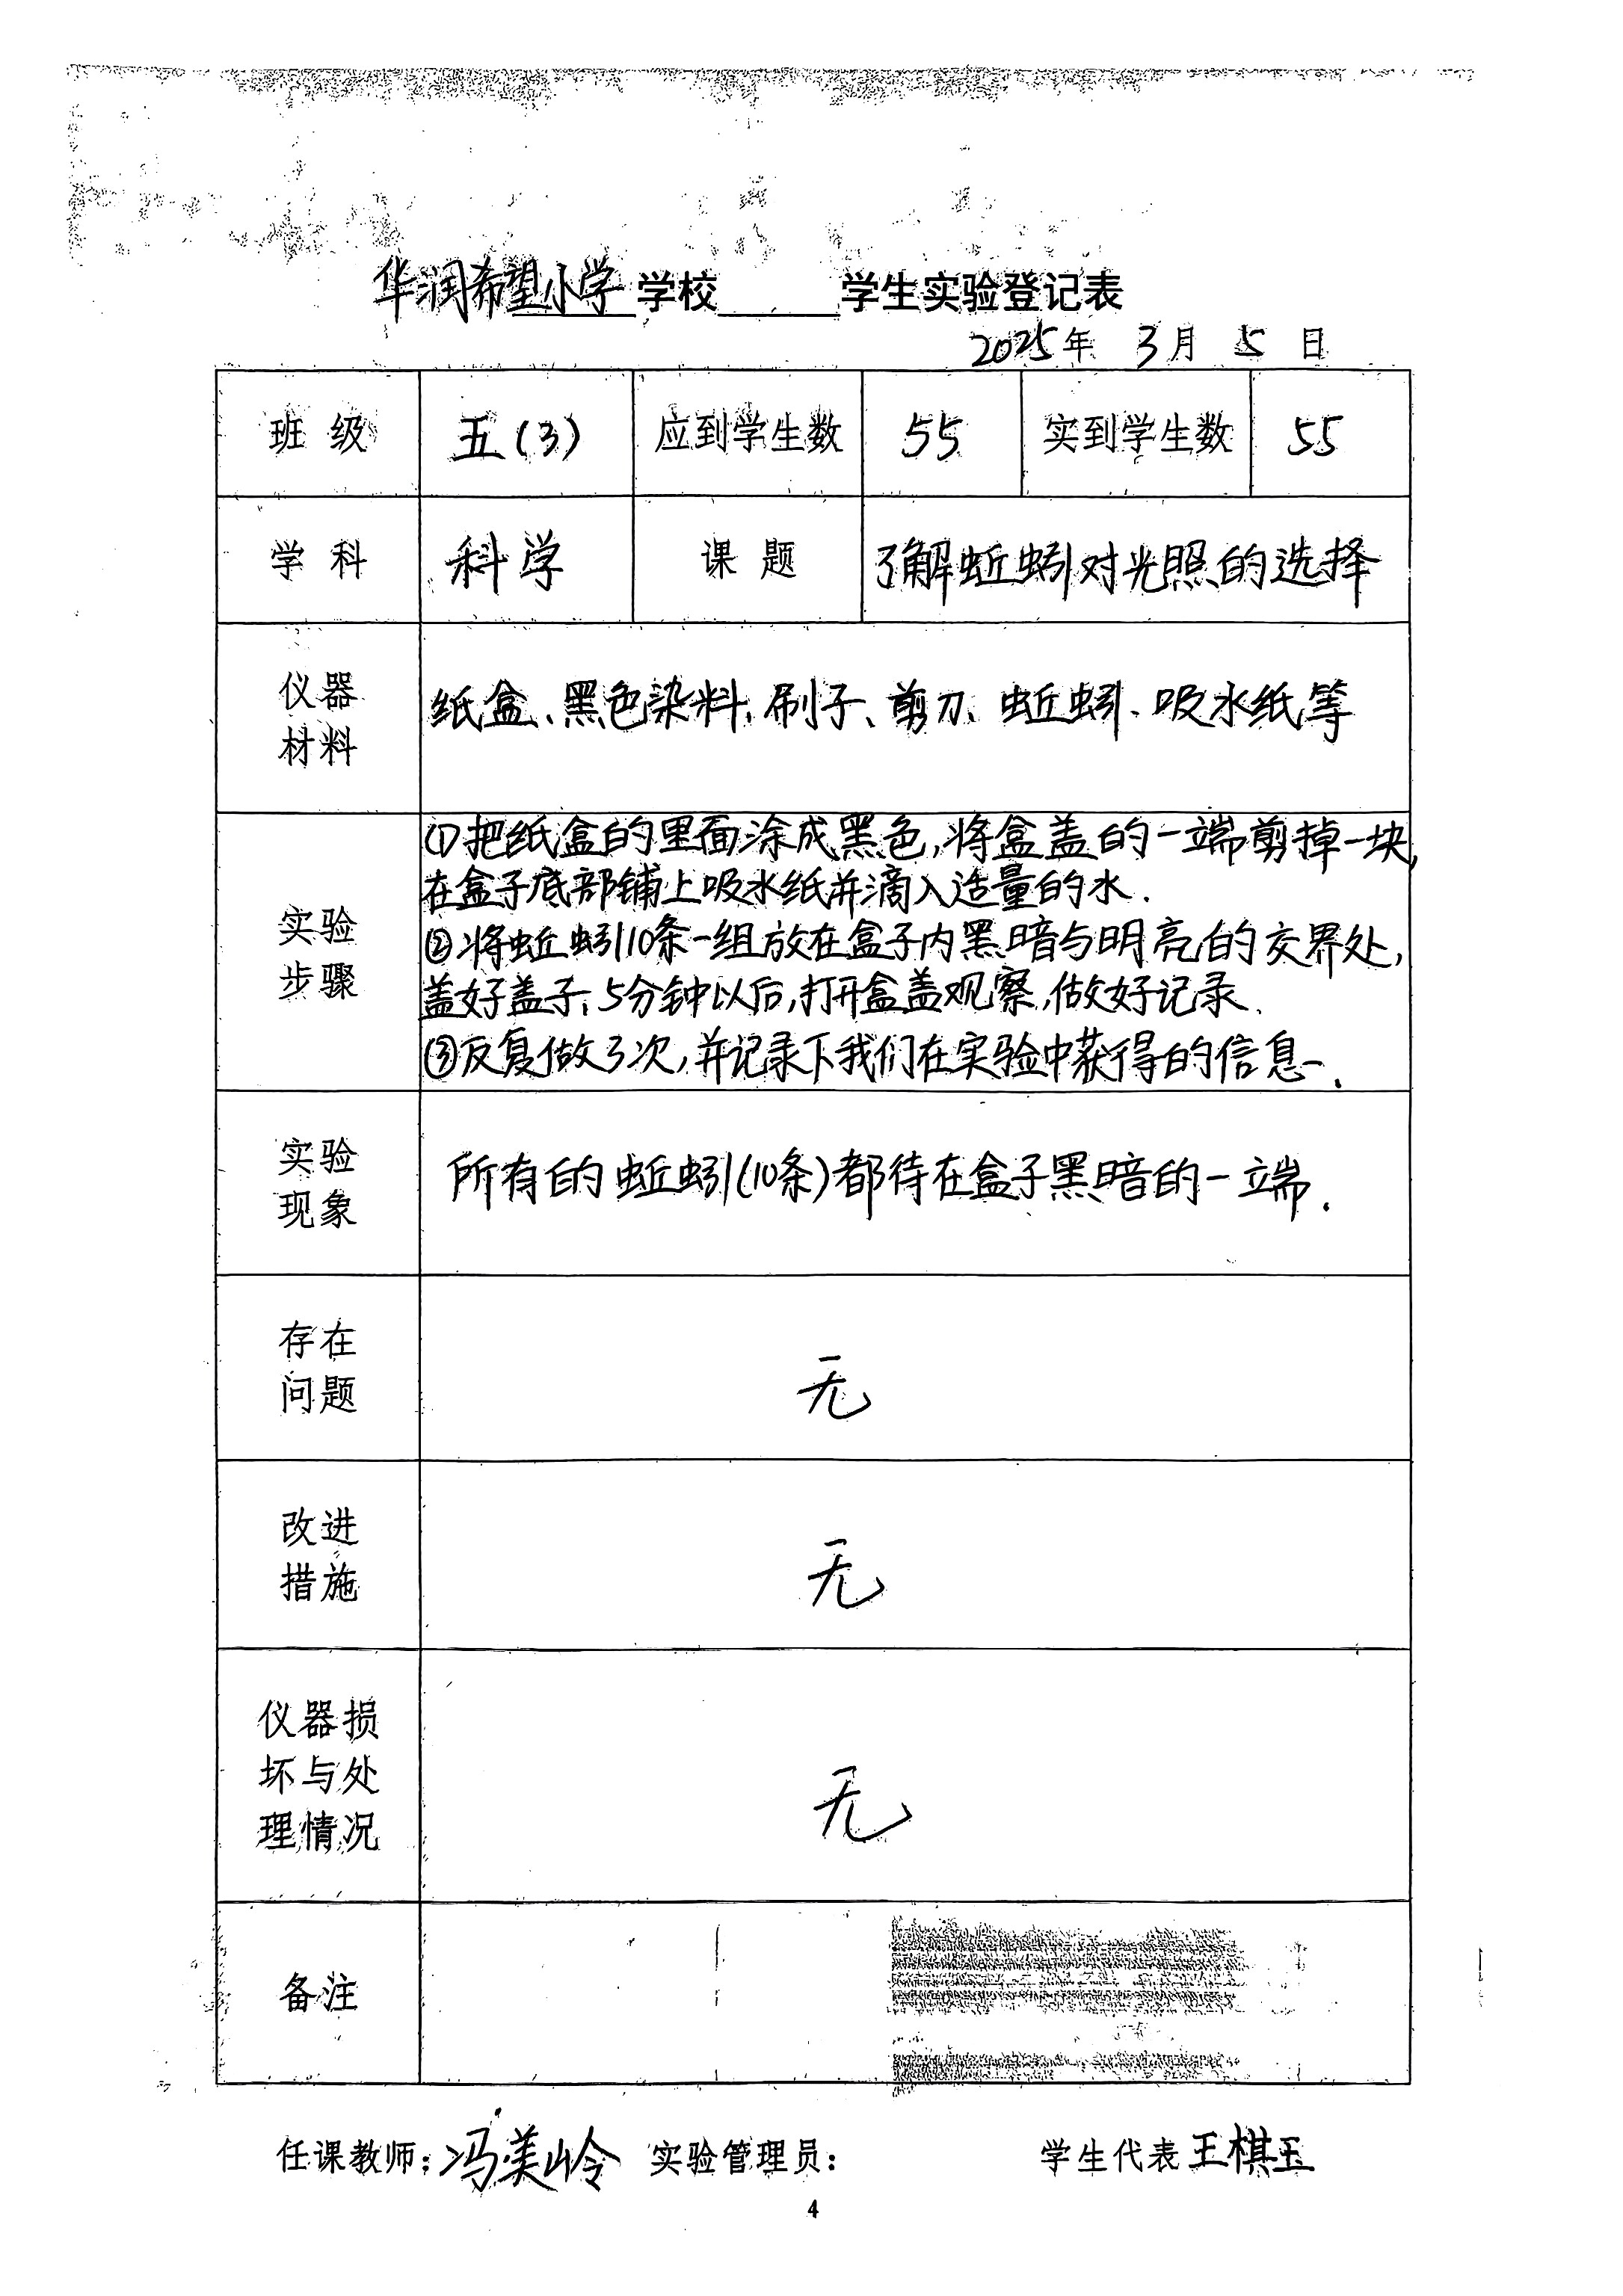 华润希望小学学校______学生实验登记表
2025年 3月 5日
班 级 五(3) 应到学生数 55 实到学生数 55
学 科 科学 课 题 了解蚯蚓对光照的选择
仪器
材料
纸盒、黑色染料、刷子、剪刀、蚯蚓、吸水纸等
实验
步骤
①把纸盒的里面涂成黑色,将盒盖的一端剪掉一块,
在盒子底部铺上吸水纸并滴入适量的水.
②将蚯蚓10条一组放在盒子内黑暗与明亮的交界处,
盖好盖子、5分钟以后,打开盒盖观察,做好记录.
③反复做3次,并记录下我们在实验中获得的信息.
实验
现象
所有的蚯蚓(10条)都待在盒子黑暗的一端.
存在
问题
无
改进
措施
无
仪器损
坏与处
理情况
无
备注
任课教师:冯美岭 实验管理员: 学生代表 王棋玉
4